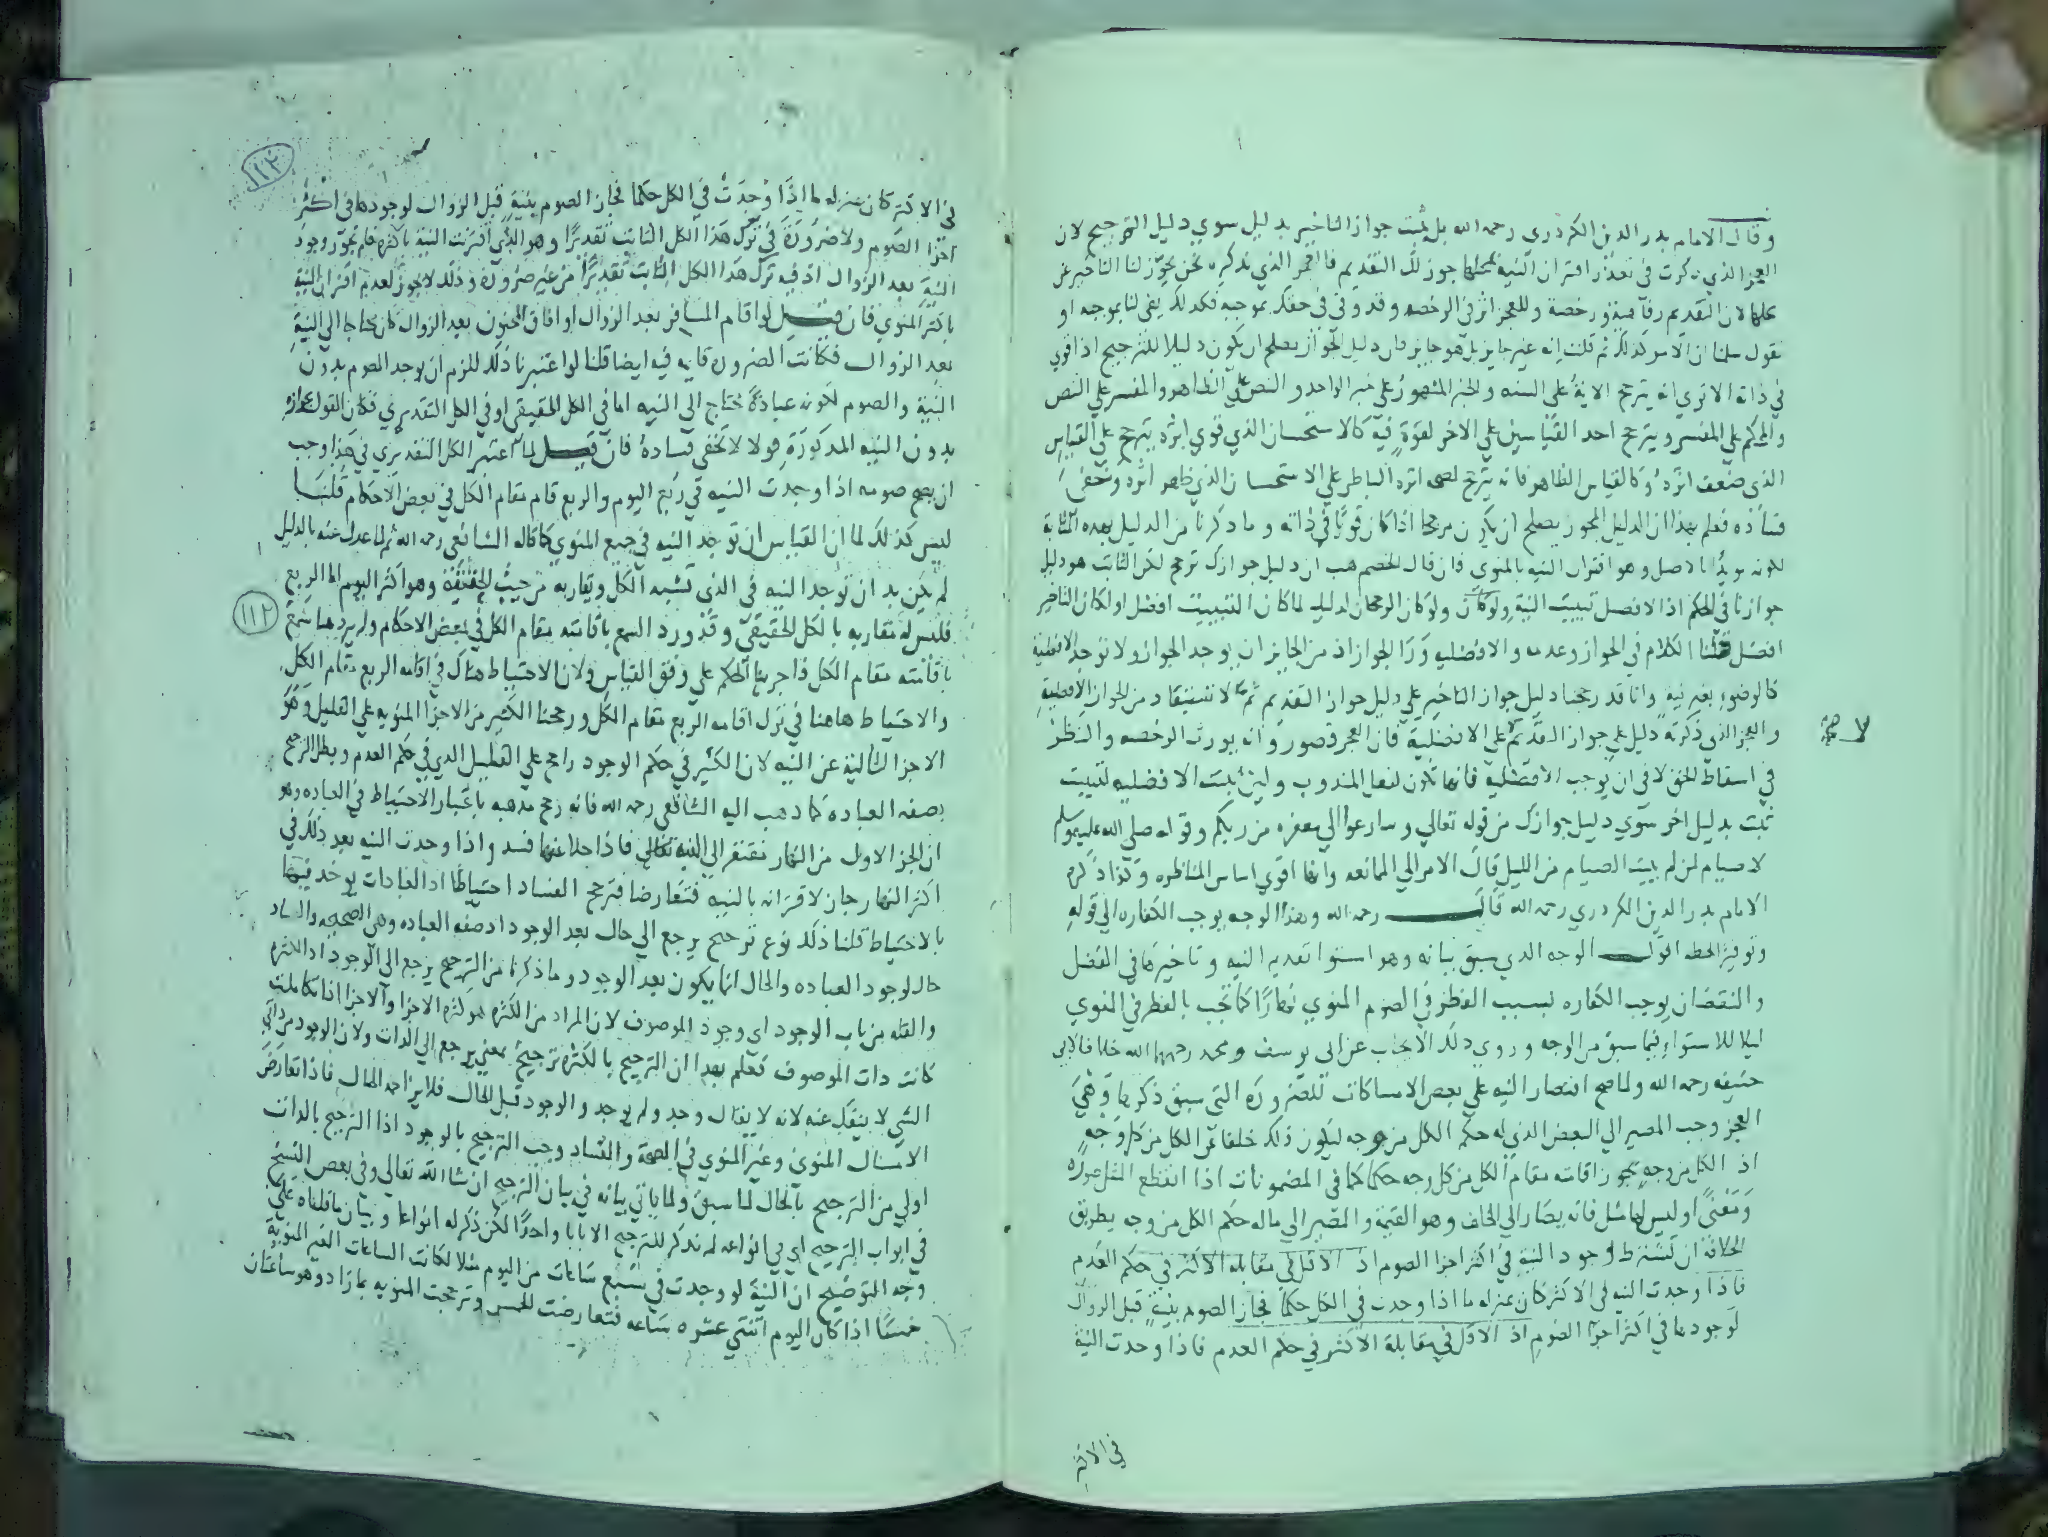 وقال الامام بدر الدين الكردري رحمه الله بل يثبت جواز التاخير بدليل سوي دليل الترجيح لان
العجز الذي ذكرت في تعذر اقتران النية بجوز لك التقديم فالعجز الذي نذكره نحن يجوز لنا التاخير عن
لان التقديم رفاهية ورخصة وللعجز اثر في الرخصه وقد وفي في حقك بموجبه فكذلك يفي لنا بموجبه او
نقول سلمنا ان الامر كذلك ثم قلت انه غير جايز بل هو جايز فان دليل الجواز يصلح ان يكون دليلا للترجيح اذا قوي
في ذاته الا تري انه يترجح الاية على السنه والخبر المشهور على خبر الواحد والنص على الظاهر والمفسر علي النص
والمحكم علي المفسر ويترجح احد القياسين علي الاخر لقوة فيه كالاستحسان الذي قوي اثره يترجح علي القياس
الذي ضعف اثره وكالقياس الظاهر فانه يترجح لصحه اثره الباطن علي الاستحسان الذي ظهر اثره وخفي
فساده فعلم بهذا ان الدليل المجوز يصلح ان يكون مرجحا اذا كان قويا في ذاته وما ذكرنا من الدليل بهذه المثابة
لكونه مويدا بالاصل وهو اقتران النيه بالمنوي فان قال الخصم هب ان دليل جوازك ترجح لكن الثابت هو دليل
جوازنا في الحكم اذ الافضل تبييت النية ولو كان الرجحان لدليلك لما كان التبييت افضل او لكان التاخير
افضل قلنا الكلام في الجواز وعدمه والافضليه ورا الجواز اذ من الجايز ان يوجد الجواز ولا توجد الافضلية
كالوضوء بغير نية وانا قد رجحنا دليل جواز التاخير علي دليل جواز التقديم ثم لا تستفاد من الجواز الافضلية
والعجز الذي ذكرته دليل علي جواز التقديم لا علي الافضلية فان العجز قصور وانه يورث الرخصه والنظر
لا صح
في اسقاط الحق لا في ان يوجب الافضليه فانها تكون لنفل المندوب ولئن ثبتت الافضليه لتبييت
ثبت بدليل اخر سوي دليل جوازك من قوله تعالي وسارعوا الي مغفره من ربكم وقوله صلي الله عليه وسلم
لا صيام لمن لم يبيت الصيام من الليل قال الامر الي الممانعه وانها اقوي اساس المناظره وكذا ذكره
الامام بدر الدين الكردري رحمه الله قال رحمه الله وهذا الوجه يوجب الكفاره الي قوله
اقول الوجه الذي سبق بيانه وهو استوا تقديم النيه وتاخيرها في الفضل
والنقصان يوجب الكفاره بسبب الفطر في الصوم المنوي نهارًا كما تجب بالفطر في المنوي
ليلا للاستواء فيما سبق من الوجه وروي ذلك الايجاب عن ابي يوسف ومحمد رحمهما الله خلافا لابي
حنيفه رحمه الله ولما صح اقتصار النيه علي بعض الامساكات للضروره التي سبق ذكرها وهي
العجز وجب المصير الي البعض الذي له حكم الكل من وجه ليكون ذلك خلفا عن الكل من كل وجه
اذ الكل من وجه يجوز اقامته مقام الكل من كل وجه حكما كما في المضمونات اذا انقطع المثل صوره
ومعنى او ليس لها مثل فانه يصار الي الخلف وهو القيمة والمصير الي ماله حكم الكل من وجه بطريق
الخلافة ان تشترط وجود النية في اكثر اجزا الصوم اذ الاقل في مقابلة الاكثر في حكم العدم
فاذا وجدت النيه في الاكثر كان بمنزله ما اذا وجدت في الكل حكما فجاز الصوم بنية قبل الزوال
لوجودها في اكثر اجزا الصوم اذ الاقل في مقابلة الاكثر في حكم العدم فاذا وجدت النية
في الاكثر
١١٢
في الاكثر كان بمنزله ما اذا وجدت في الكل حكما فجاز الصوم بنية قبل الزوال لوجودها في اكثر
اجزا الصوم ولا ضرورة في ترك هذا الكل الثابت تقديرًا وهو الذي اقترنت النية باكثره فلم يجوز وجود
النية بعد الزوال اذ فيه ترك هذا الكل الثابت تقديرًا من غير ضرورة وذلك لا يجوز لعدم اقتران النية
باكثر المنوي فان قيل لو اقام المسافر بعد الزوال او افاق المجنون بعد الزوال كان محتاجا الي النية
بعد الزوال فكانت الضروره قايمه فيه ايضا قلنا لو اعتبرنا ذلك للزم ان يوجد الصوم بدون
النية والصوم لكونه عبادة محتاج الي النيه اما في الكل الحقيقي او في الكل التقديري فكان القول بجوازه
بدون النيه المذكورة قولا لا يخفي فساده فان قيل لما اعتبر الكل التقديري في هذا وجب
ان يصح صومه اذا وجدت النيه في ربع اليوم والربع قام مقام الكل في بعض الاحكام قلنا
ليس كذلك لما ان القياس ان توجد النيه في جميع المنوي كما قاله الشافعي رحمه الله ثم لما عدل عنه بالدليل
لم يكن بد ان توجد النيه في الذي تشبه الكل ويقاربه من حيث الحقيقة وهو اكثر اليوم اما الربع
١١٢
فليس له مقاربه بالكل الحقيقي وقد ورد السمع باقامته مقام الكل في بعض الاحكام ولم يرد هنا سمع
باقامته مقام الكل فاجرينا الحكم علي وفق القياس ولان الاحتياط هناك في اقامه الربع مقام الكل
والاحتياط هاهنا في ترك اقامه الربع مقام الكل ورجحنا الكثير من الاجزا المنويه علي القليل وهو
الاجزا الخالية عن النيه لان الكثير في حكم الوجود راجح علي القليل الذي في حكم العدم وبطل الترجيح
بصفه العباده كما ذهب اليه الشافعي رحمه الله فانه رجح مذهبه باعتبار الاحتياط في العباده وهو
ان الجز الاول من النهار مفتقر الي النيه فاذا خلا عنها فسد واذا وجدت النيه بعد ذلك في
اكثر النهار جاز لاقترانه بالنيه فتعارضا فترجح الفساد احتياطًا اذ العبادات يوخذ فيها
بالاحتياط قلنا ذلك نوع ترجيح يرجع الي حال بعد الوجود اذ صفه العباده وهي الصحه والفساد
حال لوجود العباده والحال انما يكون بعد الوجود وما ذكرنا من الترجيح يرجع الي الوجود اذ الكثره
والقله من باب الوجود اي وجود الموصوف لان المراد من الكثره هو كثره الاجزا والاجزا اذا تكاملت
كانت ذات الموصوف فعلم بهذا ان الترجيح بالكثره ترجيح بمعني يرجع الي الذات ولان الوجود من ذاتي
الشي لا ينفك عنه لانه لا يقال وجد ولم يوجد والوجود قبل الحال فلا يزاحمه الحال فاذا تعارض
الامساك المنوي وغير المنوي في الصحة والفساد وجب الترجيح بالوجود اذ الترجيح بالذات
اولي من الترجيح بالحال لما سبق ولما ياتي بيانه في بيان الترجيح ان شا الله تعالي وفي بعض النسخ
في ابواب الترجيح اي في انواعه لم نذكر للترجيح الا بابا واحدًا لكن ذكر له انواعا وبيان ما قلناه علي
وجه التوضيح ان النية لو وجدت في سبع ساعات من اليوم مثلا لكانت الساعات الغير المنوية
خمسًا اذا كان اليوم اثنتي عشره ساعه فتعارضت الخمس وترجحت المنويه بما زاد وهو ساعتان